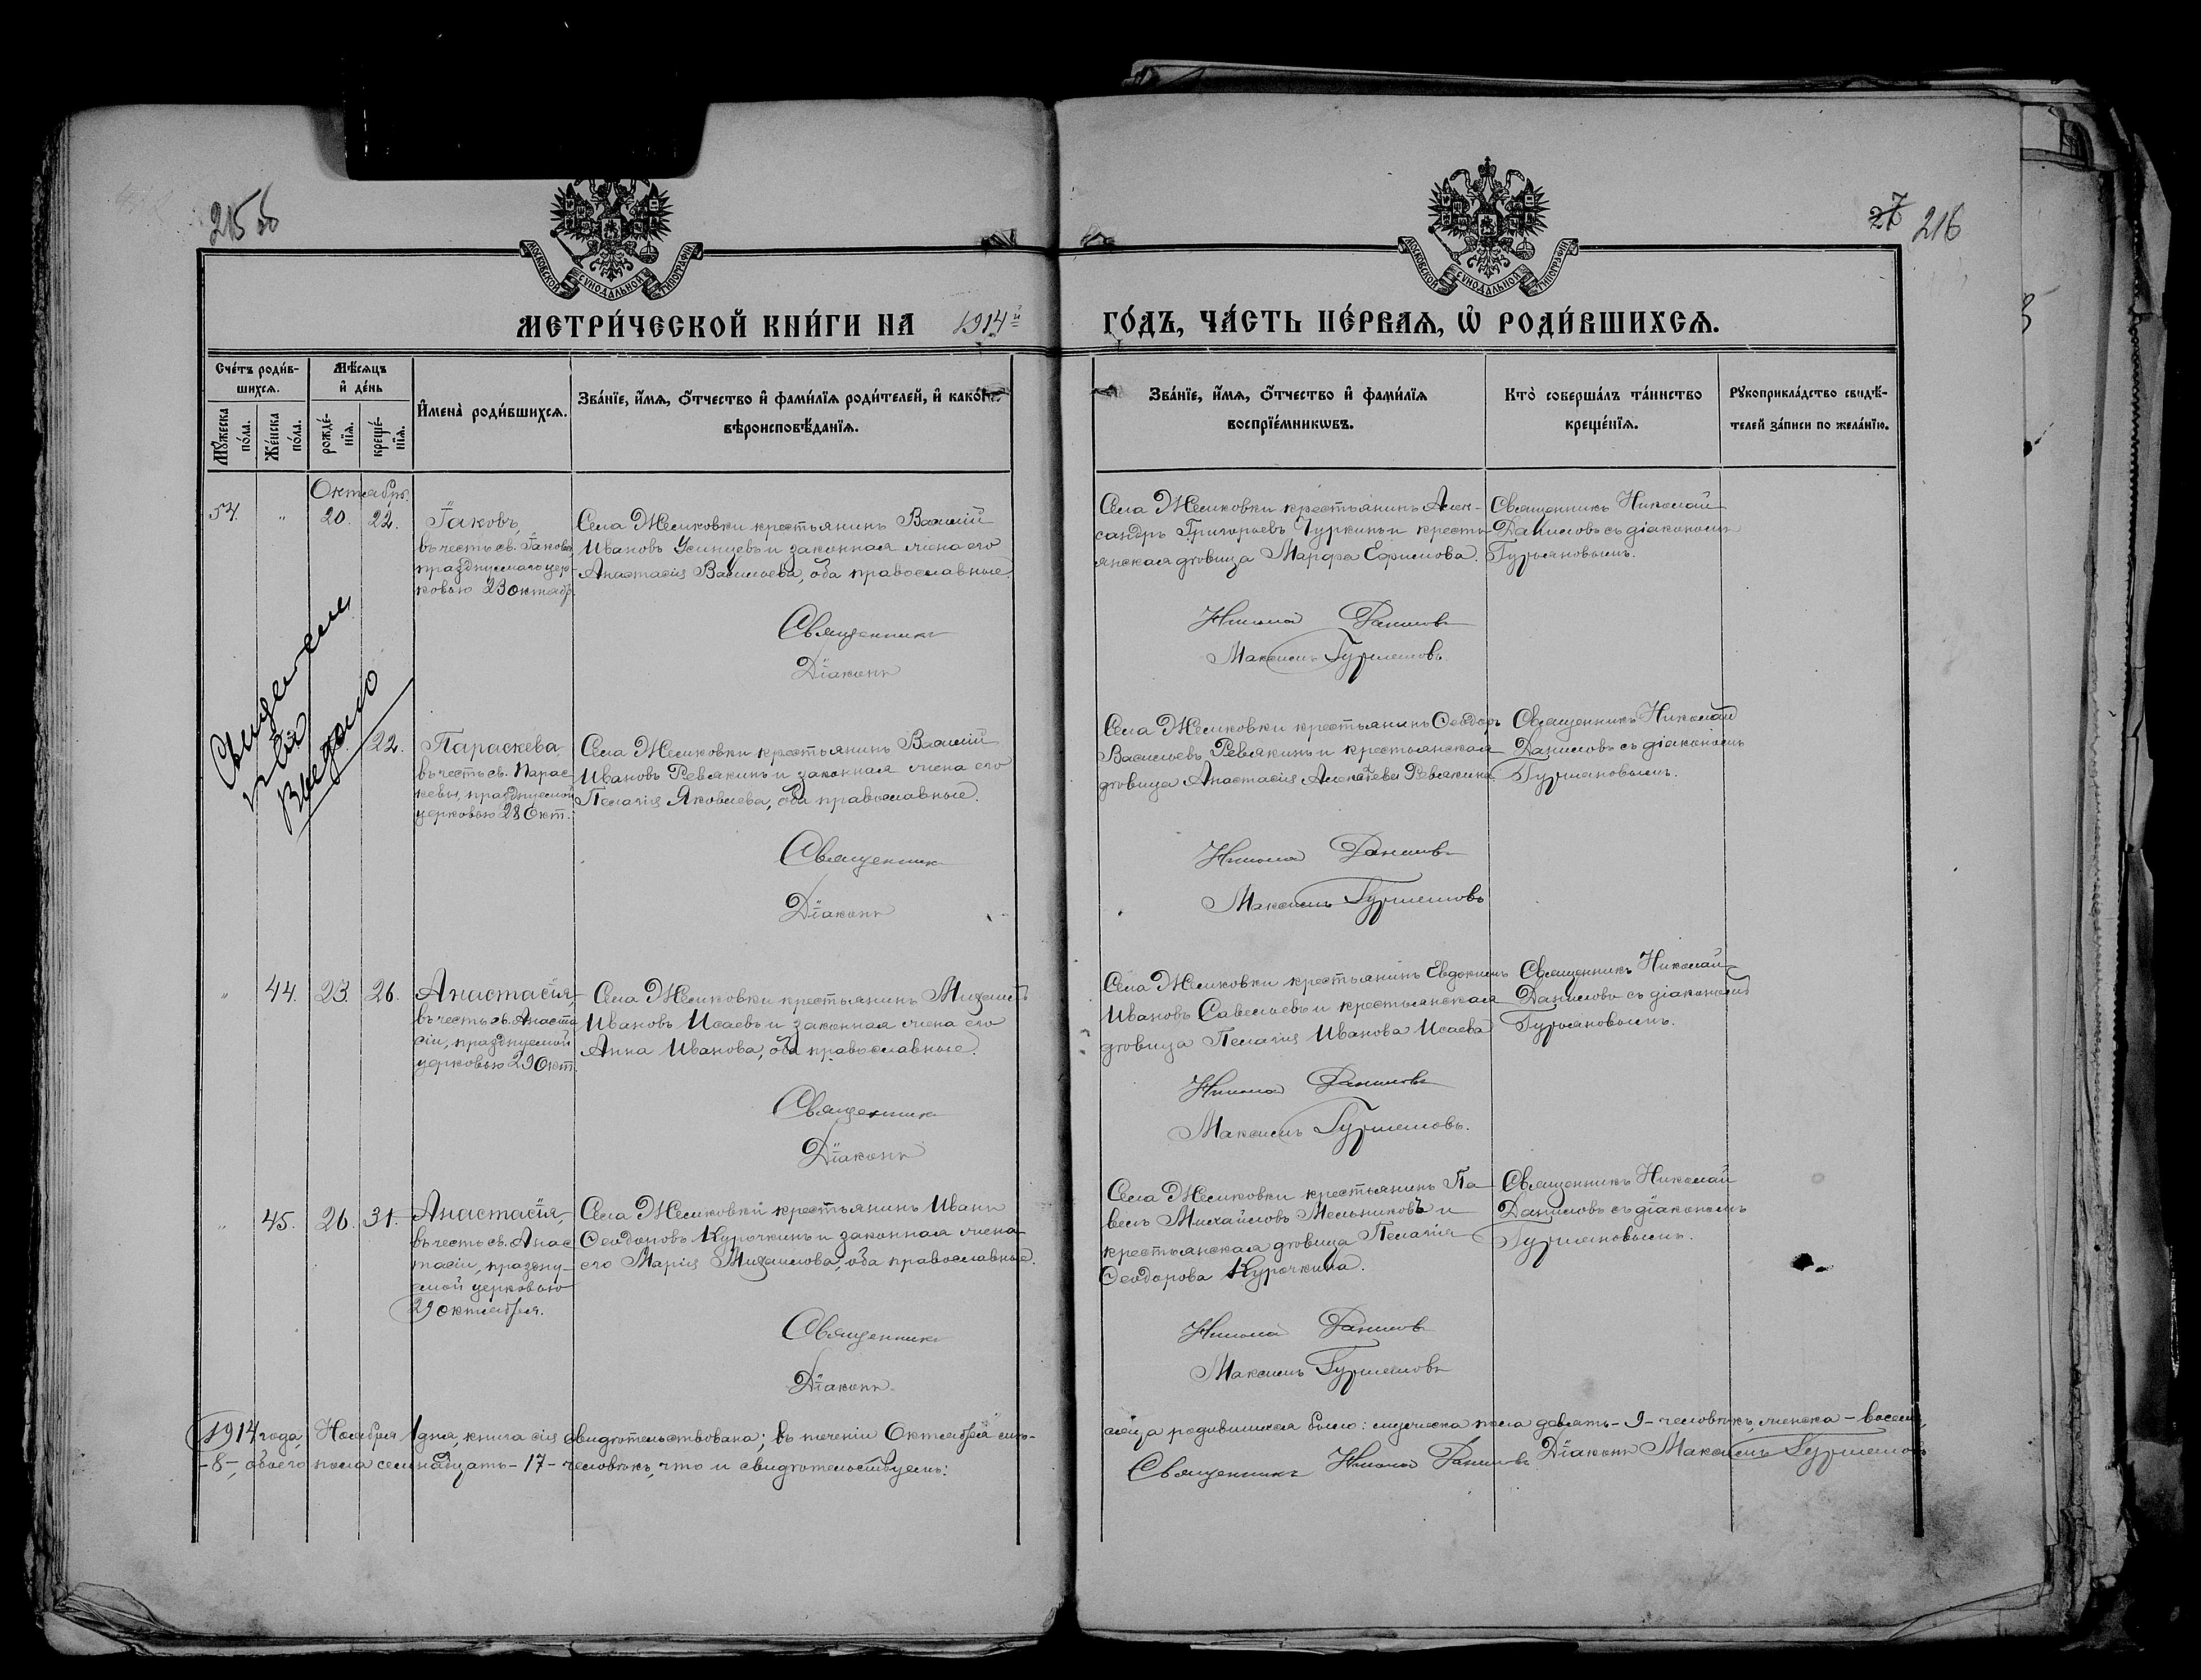 215 об
27 216
МОСКОВСКОЙ СУНОДАЛЬНОЙ ТИПОГРАФІИ
МОСКОВСКОЙ СУНОДАЛЬНОЙ ТИПОГРАФІИ
МЕТРИ́ЧЕСКОЙ КНИ́ГИ НА 1914й ГО́ДЪ, ЧА́СТЬ ПЕ́РВАѦ, Ѡ҆ РОДИ́ВШИХСѦ.
Сче́тъ роди́в-
шихсѧ.
Мꙋ́жеска по́ла.
Же́нска по́ла.
Мѣ́сѧцъ
и҆ де́нь
рожде́-
нїѧ.
креще́-
нїѧ.
И҆мена̀ роди́вшихсѧ.
Зва́нїе, и҆́мѧ, ѻ҆́тчество и҆ фами́лїѧ роди́телей, и҆ како́гѡ
вѣроисповѣ́данїѧ.
Зва́нїе, и҆́мѧ, ѻ҆́тчество и҆ фами́лїѧ
воспрїе́мникѡвъ.
Кто̀ соверша́лъ та́инство
креще́нїѧ.
Рꙋкоприкла́дство свидѣ́-
телей за́писи по жела́нїю.
Октябрь.
54. „ 20. 22.
Іаковъ,
въ честь св. Іакова,
празднуемаго цер-
ковью 23 октяб.
Села Жемковки крестьянинъ Василій
Ивановъ Усинцевъ и законная жена его
Анастасія Васильева, оба православные.
Села Жемковки крестьянинъ Алек-
сандръ Григорьевъ Чуркинъ и кресть-
янская дѣвица Марфа Ефимова.
Священникъ Николай
Даниловъ съ діакономъ
Гурьяновымъ.
Священникъ Николай Даниловъ
Діаконъ Максимъ Гурьяновъ.
выдано
22.
Параскева
въ честь св. Парас-
кевы, празднуемой
церковью 28 Окт.
Села Жемковки крестьянинъ Василій
Ивановъ Ревякинъ и законная жена его
Пелагія Яковлева, оба православные.
Села Жемковки крестьянинъ Ѳеодоръ
Васильевъ Ревякинъ и крестьянская
дѣвица Анастасія Алексѣева Ревякина.
Священникъ Николай
Даниловъ съ діакономъ
Гурьяновымъ.
Священникъ Николай Даниловъ
Діаконъ Максимъ Гурьяновъ
„ 44. 23. 26.
Анастасія,
въ честь св. Анаста
сіи, празднуемой
церковью 29 Окт.
Села Жемковки крестьянинъ Михаилъ
Ивановъ Исаевъ и законная жена его
Анна Иванова, оба православные.
Села Жемковки крестьянинъ Евдокимъ
Ивановъ Савельевъ и крестьянская
дѣвица Пелагія Иванова Исаева
Священникъ Николай
Даниловъ съ діакономъ
Гурьяновымъ.
Священникъ Николай Даниловъ
Діаконъ Максимъ Гурьяновъ.
„ 45. 26. 31.
Анастасія,
въ честь св. Анас
тасіи, праздну-
емой церковью
29 октября.
Села Жемковки крестьянинъ Иванъ
Ѳеодоровъ Курочкинъ и законная жена
его Марія Михаилова, оба православные.
Села Жемковки крестьянинъ Па
велъ Михайловъ Мельниковъ и
крестьянская дѣвица Пелагія
Ѳеодорова Курочкина.
Священникъ Николай
Даниловъ съ діакономъ
Гурьяновымъ.
Священникъ Николай Даниловъ
Діаконъ Максимъ Гурьяновъ
1914 года, Ноября 1 дня, книга сія свидѣтельствована; въ теченіи Октября мѣ-
сяца родившихся было: мужеска пола девять - 9 - человѣкъ, женска - восемь,
- 8 -, обоего пола семнадцать - 17 - человѣкъ, что и свидѣтельствуемъ:
Священникъ Николай Даниловъ Діаконъ Максимъ Гурьяновъ